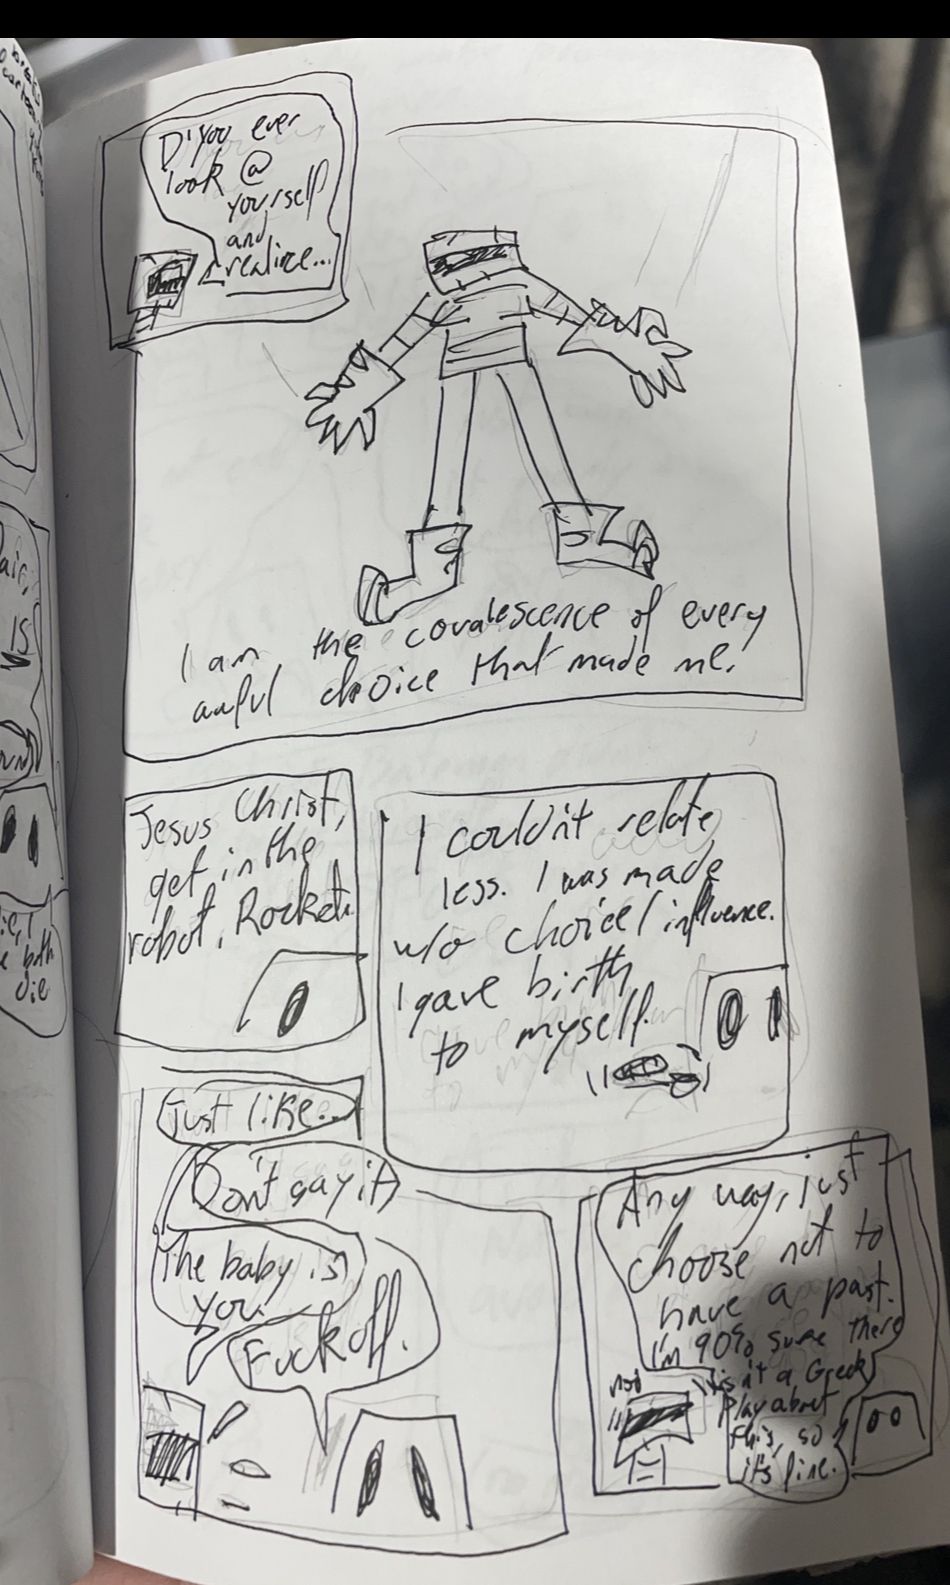 D'you ever
look @
yourself
and
realize...
I am the covalescence of every
awful choice that made me.
Jesus Christ,
get in the
robot, Rocket.
I couldn't relate
less. I was made
w/o choice/influence.
I gave birth
to myself.
Just like...
Don't say it
The baby is
you.
Fuck off.
Any way, just
choose not to
have a past.
I'm 90% sure there
isn't a Greek
Play about
this, so
it's fine.
air,
is
both
die